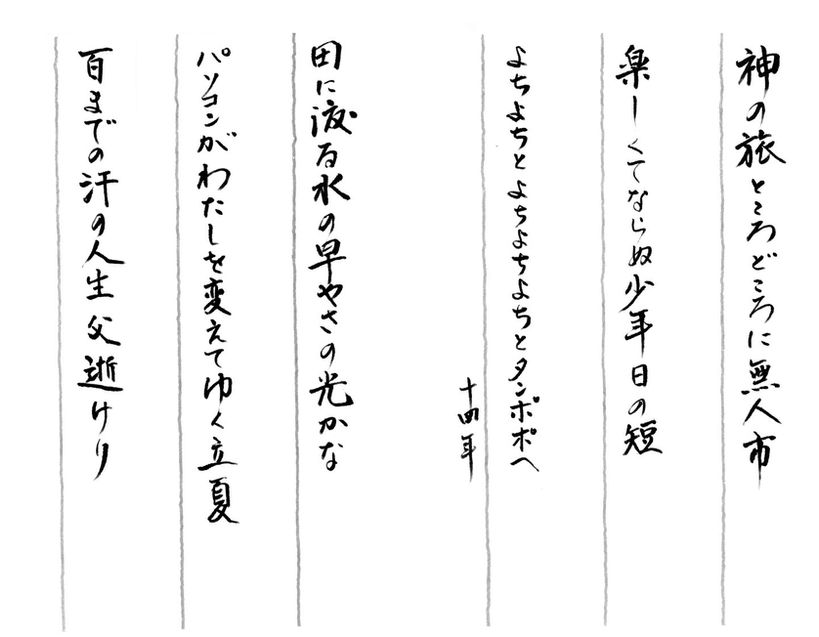 神の旅ところどころに無人市
楽しくてならぬ少年日の短
よちよちとよちよちよちとタンポポへ
十四年
田に渡る水の早やさの光かな
パソコンがわたしを変えてゆく立夏
百までの汗の人生父逝けり